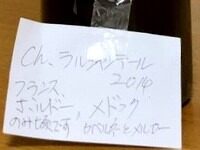 Ch、ラルヴァンデール
2010
フランス、
ボルドー、メドック
のみ頃です カベルネとメルロー